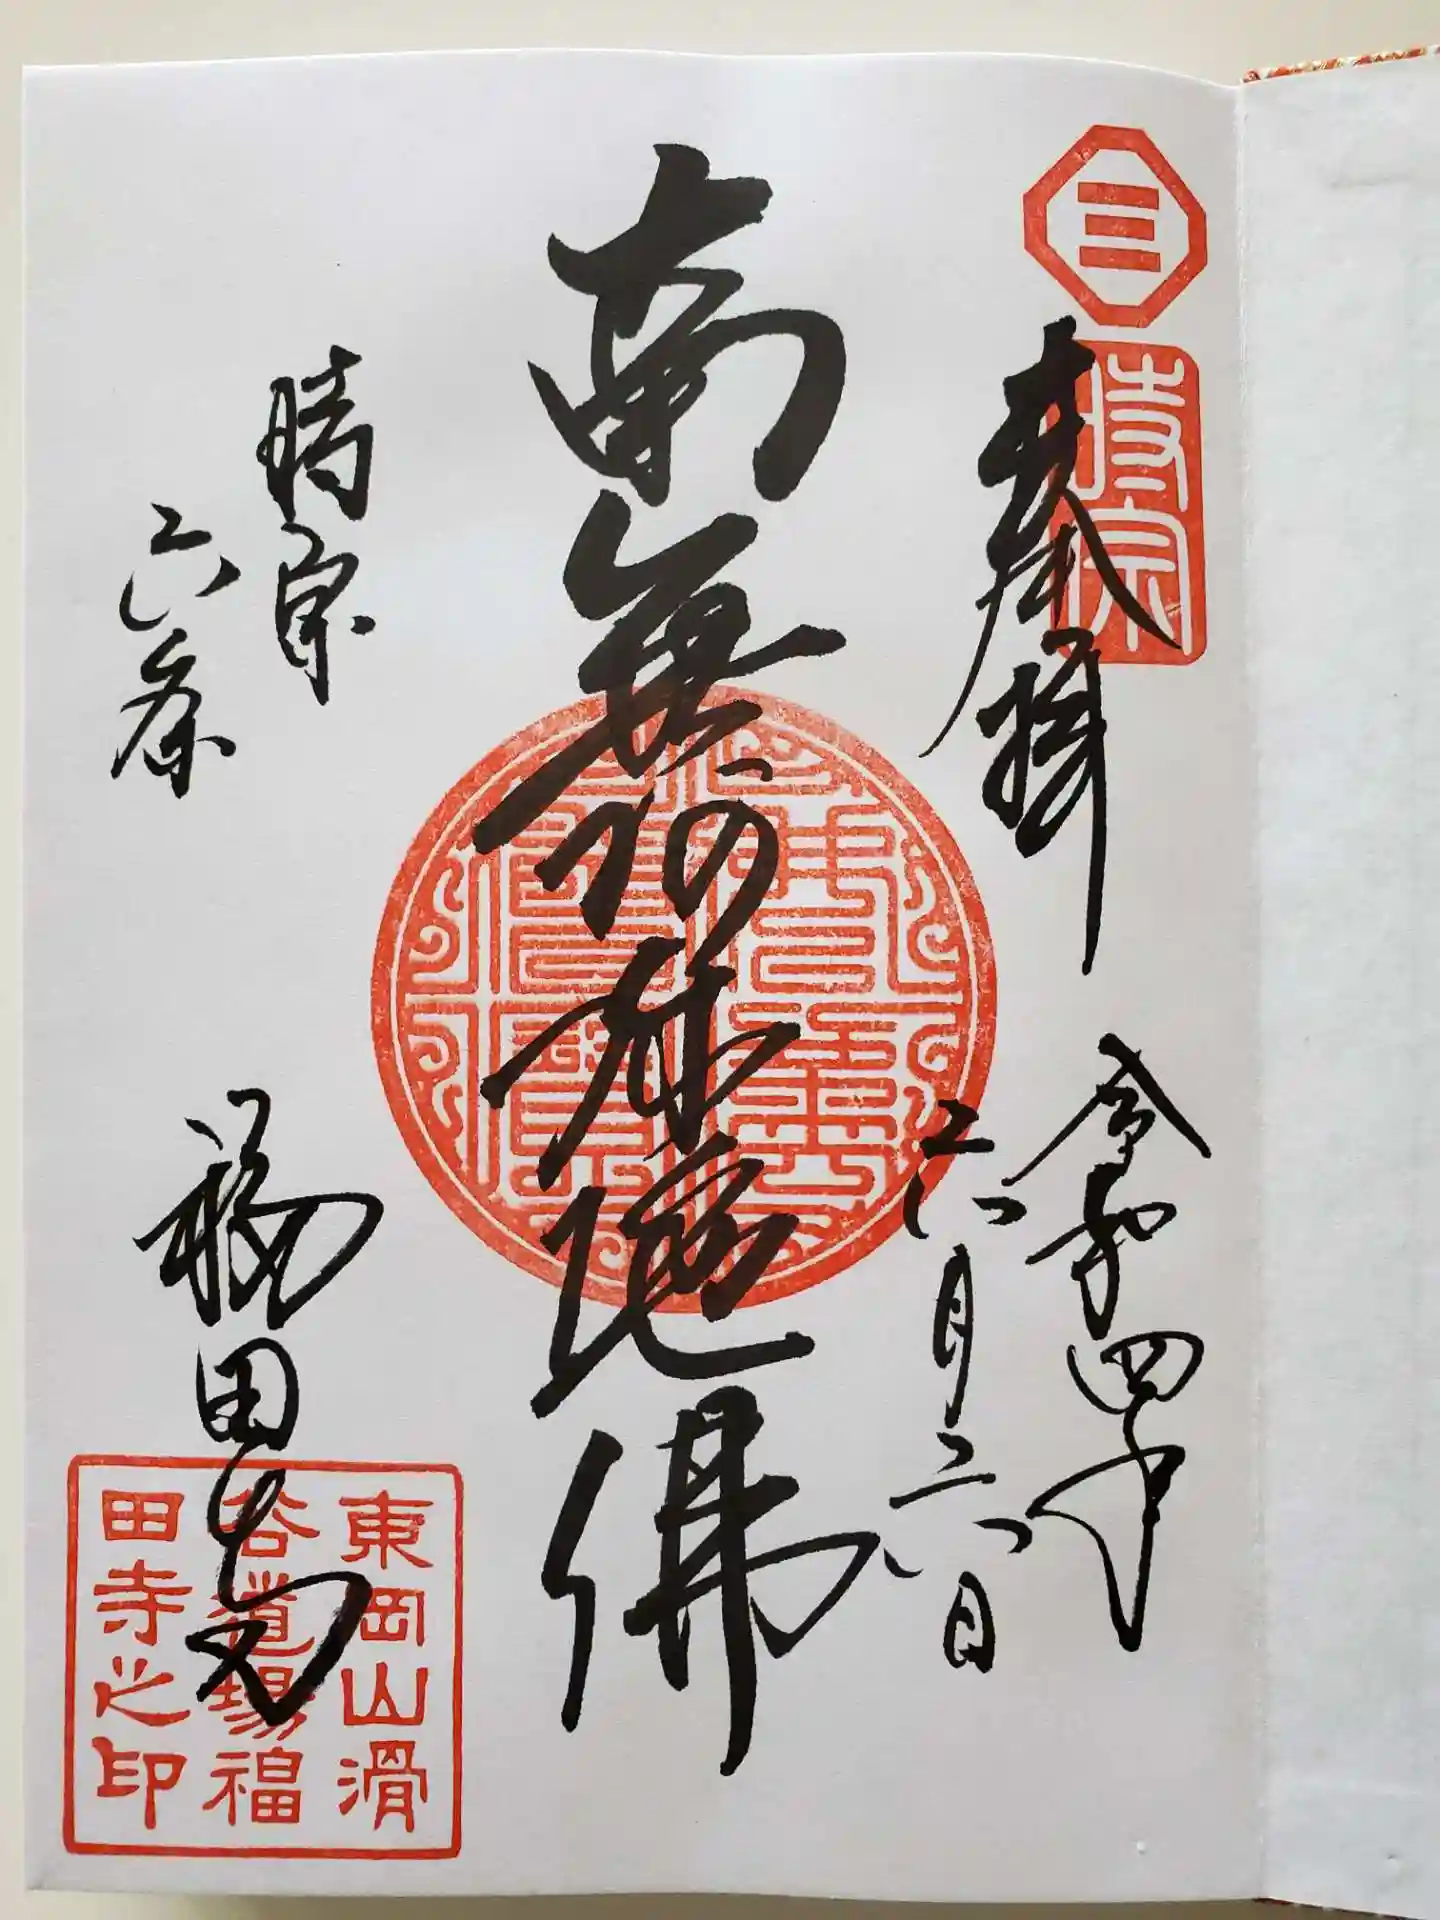 三
時宗
奉拝
令和四年
六月六日
南無阿弥陀佛
時宗
六条
福田寺
東岡山滑
谷道場福
田寺之印